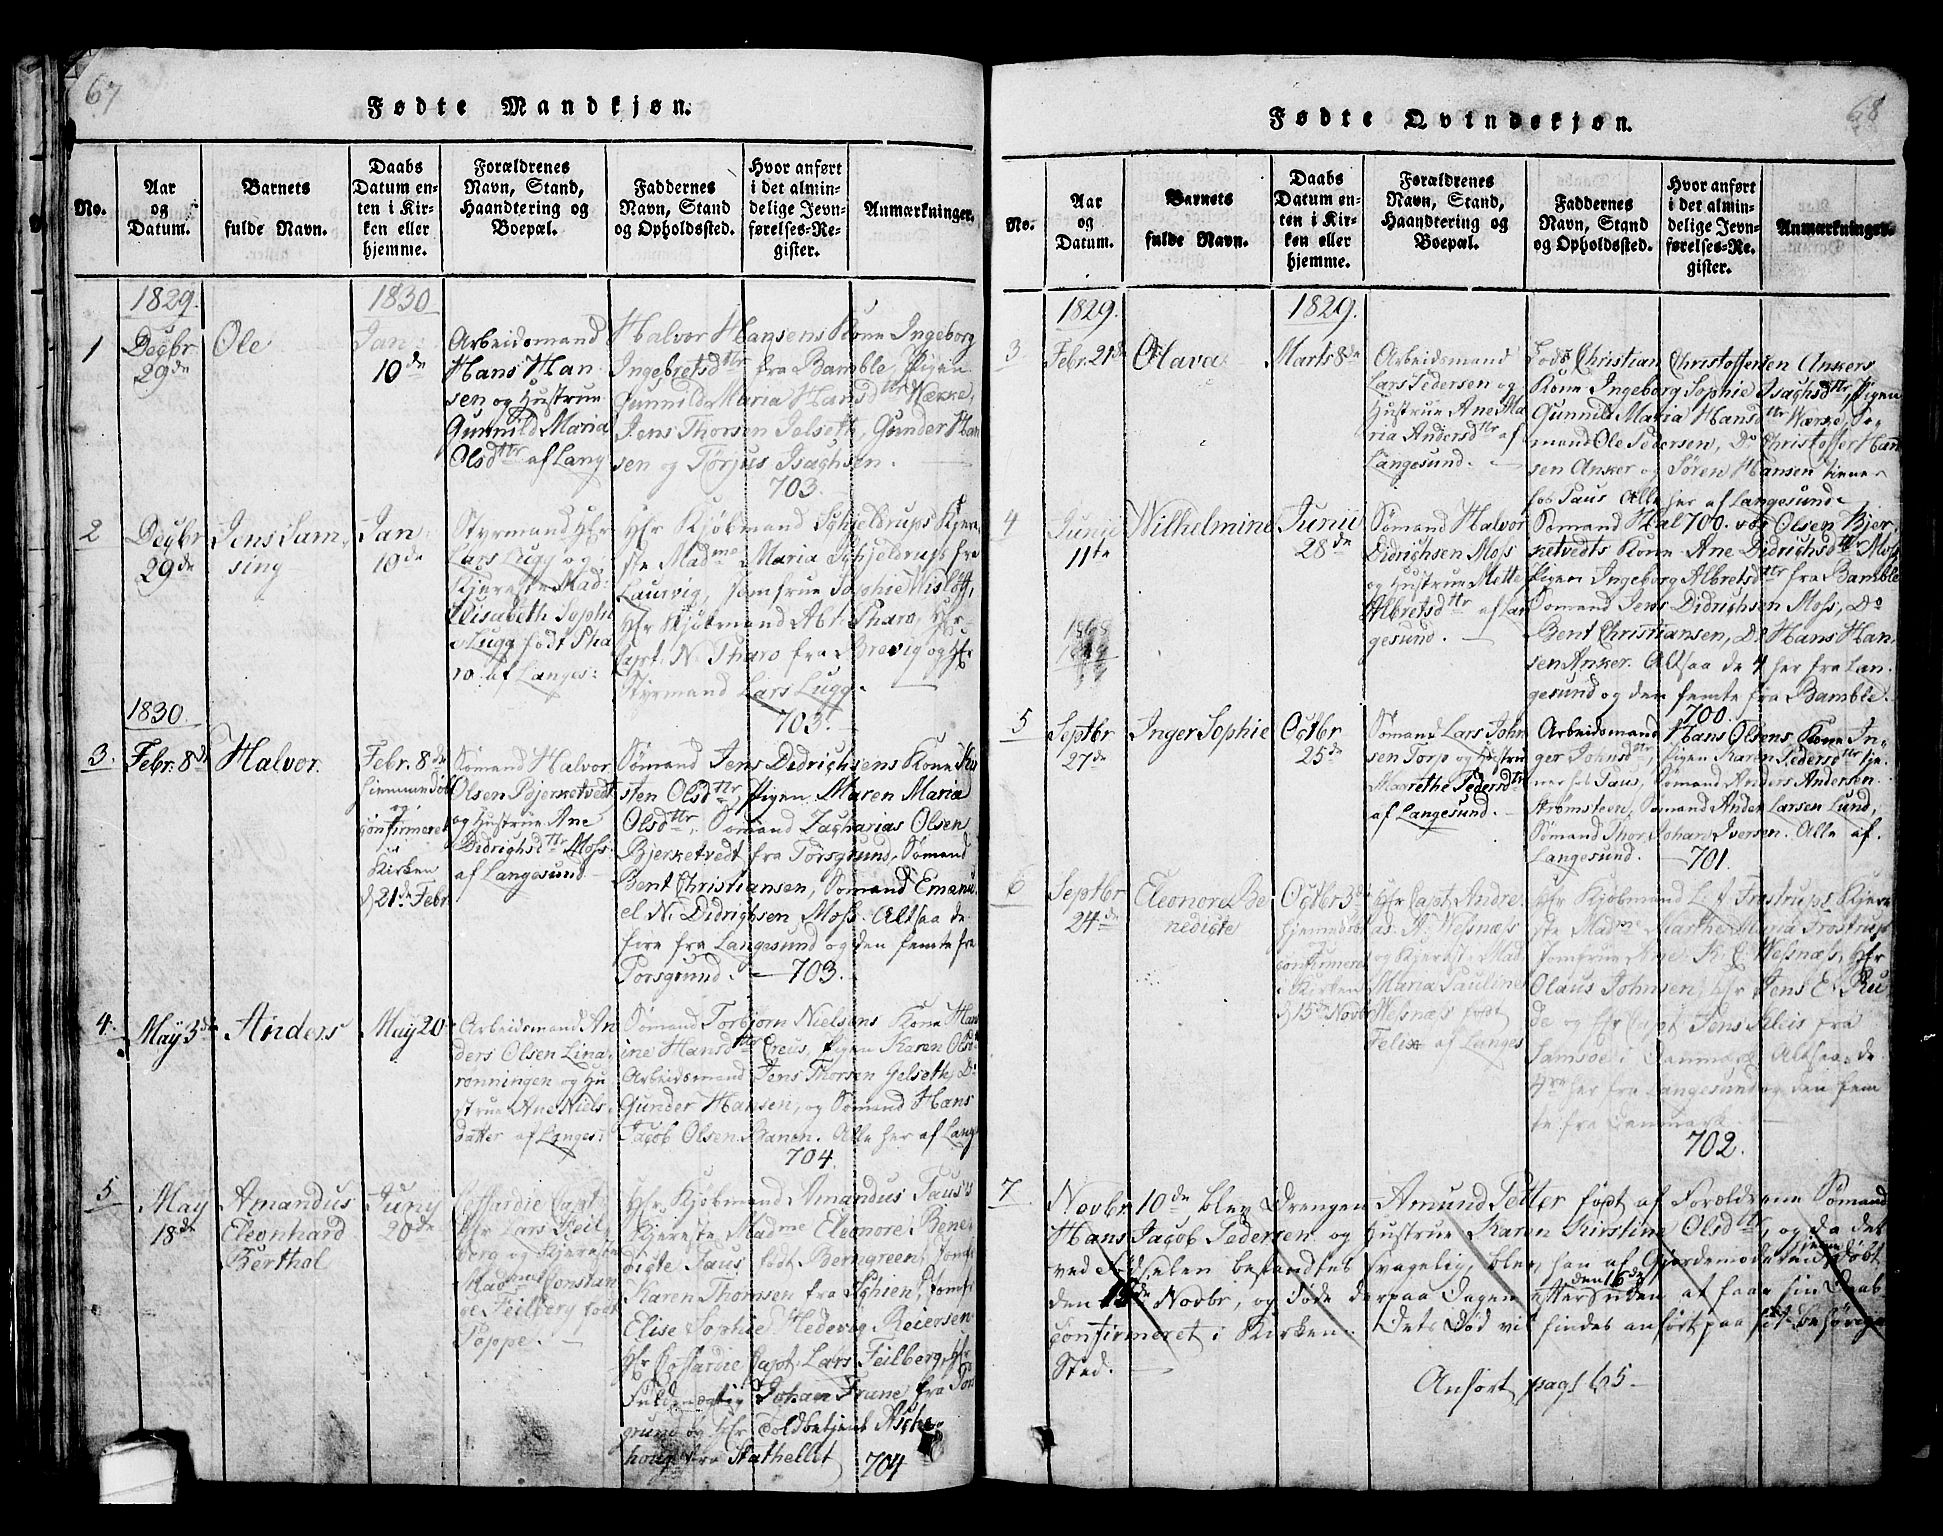 67
Fødte Mandkjøn.
No.
Aar
og
Datum.
Barnets
fulde Navn.
Daabs
Datum en-
ten i Kir-
ken eller
hjemme.
Forældrenes
Navn, Stand,
Haandtering og
Boepæl.
Faddernes
Navn, Stand
og Opholdssted.
Hvor anført
i det almin-
delige Jevn-
førelses-Re-
gister.
Anmærkninger.
1829.
1830
1
Decbr
29de
Ole
Jan:
10de
Arbeidsmand
Hans Han-
sen og Hustrue
Gunnild Maria
Olsdttr af Lang
Halvor Hansens Kone Ingeborg
Ingebretsdttr fra Bamble, Pigen
Gunnild Maria Hansdttr Kække,
Jens Thorsen Jelseth, Gunder Han
sen og Törjus Isachsen.
703.
2
Decbr
29de
Jens Lam-
sing
Jan:
10de
Styrmand Hr
Lars Lugg og
Kjereste Mad:
Elisabeth Sophi
a Lugg født Tha
ro. af Langes:
Hr Kjøbmand Schjeldrups Kjere-
ste Madme Maria Schjelderup fra
Laurvig, Jomfrue Sophie Wisløff,
Hr Kjøbmand Abr. Tharo, Hr
Capt. N. Tharo fra Brevig og Hr
Styrmand Lars Lugg.
703.
1830.
3.
Febr. 8de
Halvor.
Febr. 8de
hiemmedöbt
og
confirmeret
i
Kirken
d 21de Febr
Sömand Halvor
Olsen Bjerketvedt
og Hustrue Ane
Didrichsdttr Moss
af Langesund
Sömand Jens Didrichsens Kone Kir
sten Olsdttr, Pigen Maren Maria
Olsdttr, Sömand Zacharias Olsen
Bjerketvedt fra Porsgrund, Sömand
Bent Christiansen, Sömand Emanu
el N. Didrichsen Moss. Altsaa de
fire fra Langesund og den femte fra
Porsgrund. — 703.
4.
May 3de
Anders
May 20
Arbeidsmand An
ders Olsen Lina-
rönningen og Hu
strue Ane Niels-
datter af Langes:
Sömand Torbjorn Nielsens Kone Han
ine Hansdttr Creus, Pigen Karen Olsd
Arbeidsmand Jens Thorsen Jelseth, Do
Gunder Hansen, og Sömand Hans
Jacob Olsen Banen. Alle her af Lang
704.
5
May
18de
Amandus
Eleonhard
Berthol
Juny
20de
Coffardie Capt:
Hr Lars Feil-
berg og Kjereste
Madme Constan
ce Feilberg født
Poppe. —
Hr Kjøbmand Amandus Taus's
Kjereste Madme Eleonore Bene
digte Taus født Berngreen, Jomf.
Karen Thomsen fra Schien, Jomfr
Elise Sophie Hedevig Reiersen
Hr Coffardie Capt. Lars Feilberg, Hr
Fuldmægtig Johan Frune fra Pors
grund og Hr Toldbetjent Asche-
houg fra Stathellet 704
68
Fødte Qvindekjøn.
No.
Aar
og
Datum.
Barnets
fulde Navn.
Daabs
Datum en-
ten i Kir-
ken eller
hjemme.
Forældrenes
Navn, Stand,
Haandtering og
Boepæl.
Faddernes
Navn, Stand
og Opholdssted.
Hvor anført
i det almin-
delige Jevn-
førelses-Re-
gister.
Anmærkninger.
1829.
1829.
3
Febr. 21de
Olava
Marts 8de
Arbeidsmand
Lars Pedersen og
Hustrue Ane Ma
ria Andersdttr af
Langesund. —
Lods Christian Christoffersen Ankers
Kone Ingeborg Sophie Isachsdttr, Pigen
Gunnild Maria Hansdttr Værke, Sö-
mand Ole Pedersen, Do Christoffer Han
sen Anker og Sören Hansen tiener
hos Taus Alle her af Langesund
700.
4
Junii
11te
Wilhelmine
Junii
28de
Sömand Halvor
Didrichsen Moss
og Hustrue Mette
Albretsdttr af Lan
gesund. —
Sömand Halvor Olsen Bjer-
ketvedts Kone Ane Didrichsdttr Moss
Pigen Ingeborg Albretsdttr fra Bamble
Sömand Jens Didrichsen Moss, Do
Bent Christiansen, Do Hans Han-
sen Anker. Altsaa de 4 her fra Lan-
gesund og den femte fra Bamble.
700.
5
Septbr
27de
Inger Sophie
Octbr
25de
Sömand Lars John
sen Torp og Hustrue
Marethe Pedersdttr
af Langesund. —
Arbeidsmand Hans Olsens Kone In-
ger Johnsdttr, Pigen Karen Pedersdttr tje-
ner hos Taus, Sömand Anders Andersen
Strömsteen, Sömand Anders Larsen Lund,
Sömand Thor Johan Iversen. Alle af
Langesund. — 701.
6
Septbr
24de
Eleonora Be
nedicte
Octbr 3de
hjemmedöbt
og
confirmeret
i Kirken
d 15de Novbr
Hr Capt. Andre-
as A. Wessnæss
og Kjereste Mad,
Maria Pauline
Wesnæs født
Felix af Langes
Hr Kjøbmand L. J. Frostrups Kjere
ste Madme Marthe Maria Frostrup
Jomfrue Ane K. C. Wesnæs, Hr
Olaus Johnsen, Hr Jens E. Ru
de og Hr Capt Jens Peleis fra
Samsöe i Danmark Altsaa de
4re her fra Langesund og den fem
te fra Danmark —
702.
7
Novbr. 10de blev Drengen Amund Petter født af Forældrene Sömand
Hans Jacob Pedersen og Hustrue Karen Kirstine Olsdttr, og da det
ved Födselen befandtes svagelig, blev han af Gjordemoderen hjemmedöbt
den 15de Novbr, og döde derpaa Dagen efter den 16de uden at faae sin Daab
confirmeret i Kirken. Dets Död vil findes anfört paa sit behörige
Sted. —
Anfört pag: 65—